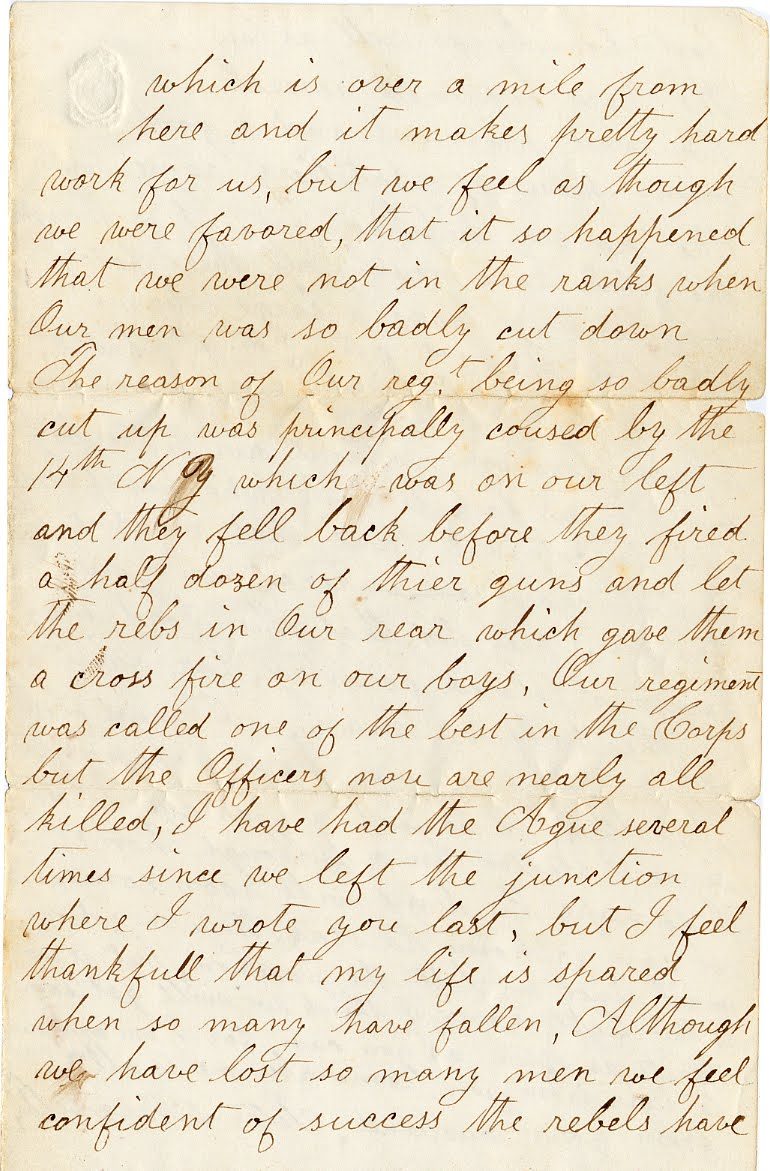 which is over a mile from
here and it makes pretty hard
work for us, but we feel as though
we were favored, that it so happened
that we were not in the ranks when
Our men was so badly cut down
The reason of Our reg.t being so badly
cut up was principally coused by the
14th N y which was on our left
and they fell back before they fired
a half dozen of thier guns and let
the rebs in Our rear which gave them
a cross fire on our boys, Our regiment
was called one of the best in the Corps
but the Officers now are nearly all
killed, I have had the Ague several
times since we left the junction
where I wrote you last, but I feel
thankfull that my life is spared
when so many have fallen, Although
we have lost so many men we feel
confident of success the rebels have